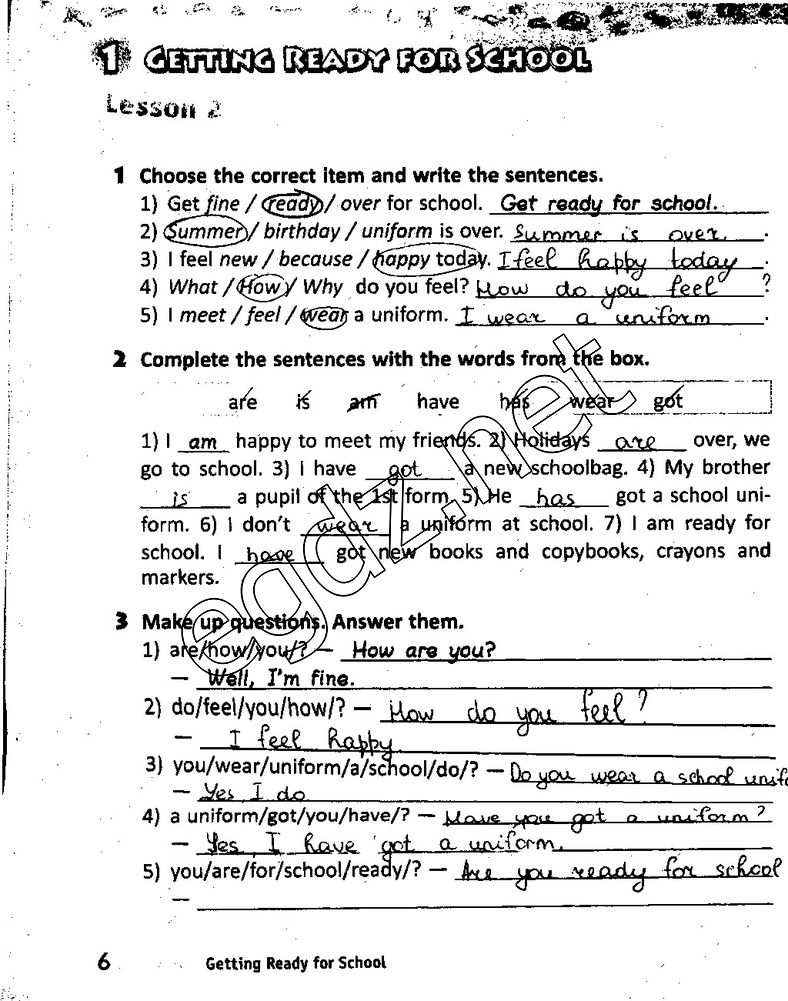 1 GETTING READY FOR SCHOOL
Lesson 2
1 Choose the correct item and write the sentences.
1) Get fine / ready / over for school. Get ready for school.
2) Summer / birthday / uniform is over. Summer is over.
3) I feel new / because / happy today. I feel happy today.
4) What / How / Why do you feel? How do you feel?
5) I meet / feel / wear a uniform. I wear a uniform.
2 Complete the sentences with the words from the box.
are is am have has wear got
1) I am happy to meet my friends. 2) Holidays are over, we
go to school. 3) I have got a new schoolbag. 4) My brother
is a pupil of the 1st form. 5) He has got a school uni-
form. 6) I don't wear a uniform at school. 7) I am ready for
school. I have got new books and copybooks, crayons and
markers.
egdz.net
3 Make up questions. Answer them.
1) are/how/you/? — How are you?
— Well, I'm fine.
2) do/feel/you/how/? — How do you feel?
— I feel happy
3) you/wear/uniform/a/school/do/? — Do you wear a school unif
— Yes I do
4) a uniform/got/you/have/? — Have you got a uniform?
— Yes, I have got a uniform.
5) you/are/for/school/ready/? — Are you ready for school
—
6 Getting Ready for School